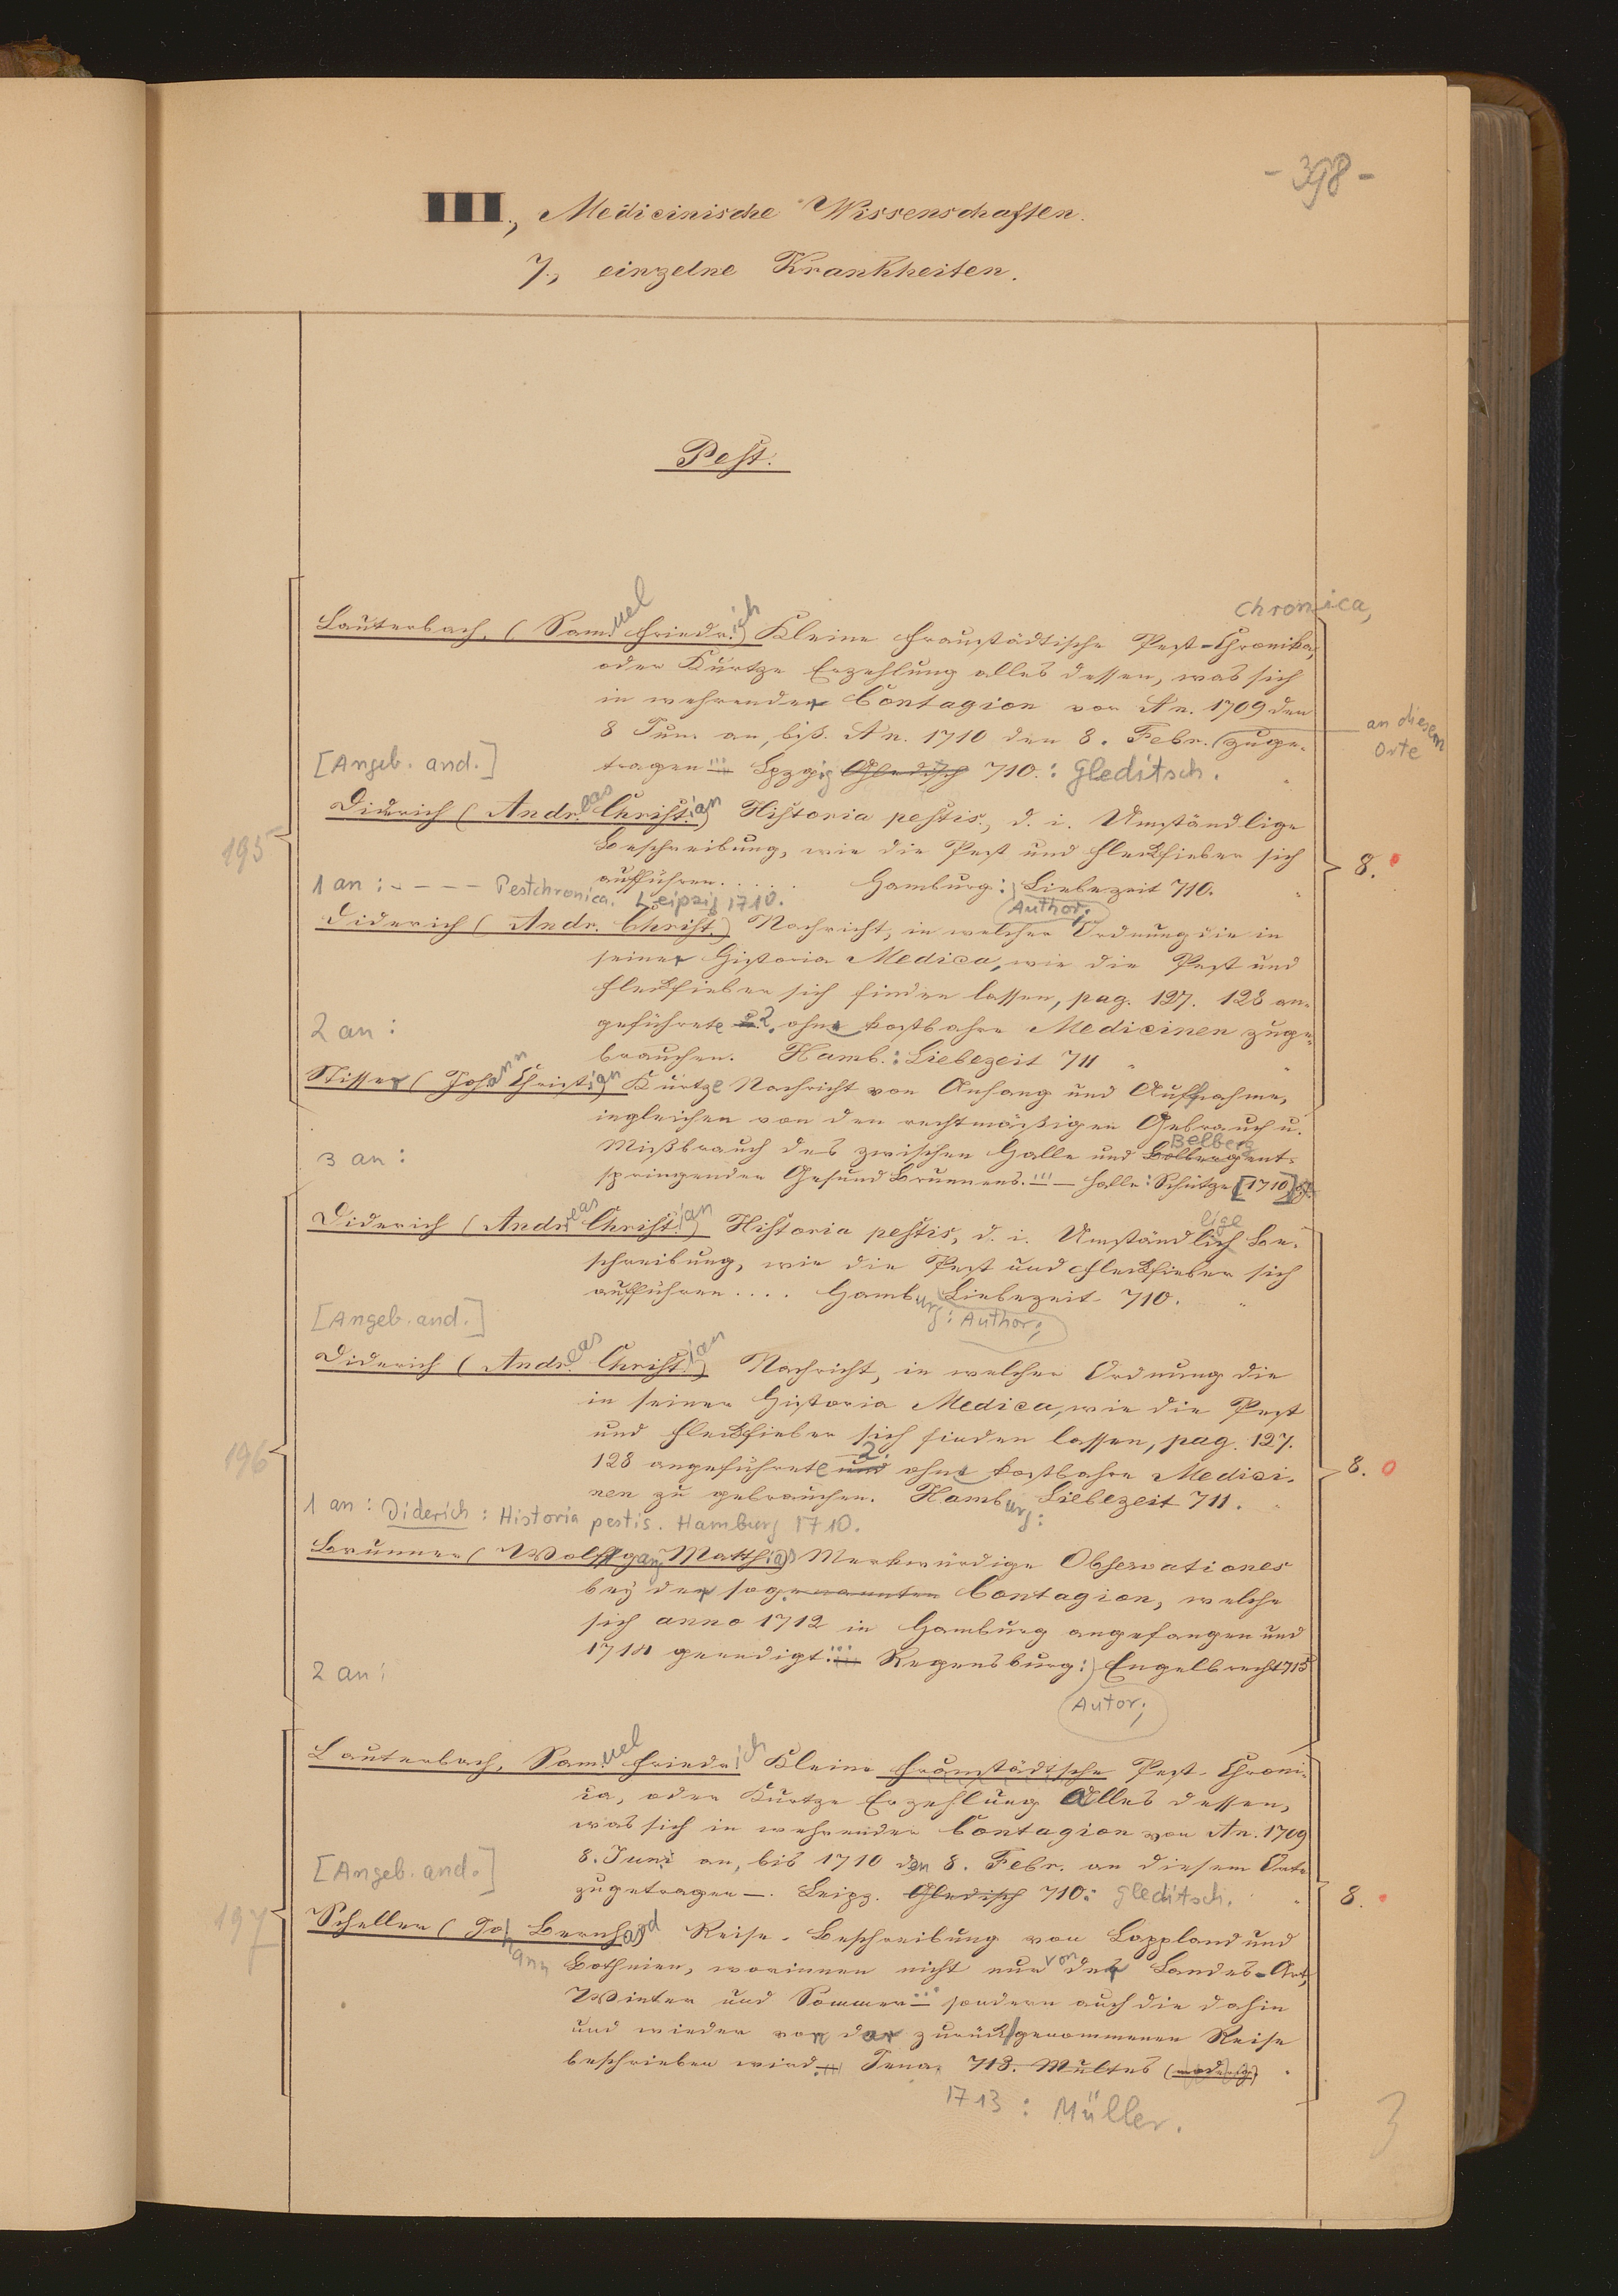 - 398 -
III., Medicinische Wissenschaften.
7., einzelne Krankheiten.
Pest.
chronica,
Lauterbach, (Samuel Friedrich) Kleine Fraustädtische Pest-Chronika,
oder Kurtze Erzehlung alles dessen, was sich
in wehrender Contagion von An. 1709 den
8 Juni an, biß. An. 1710 den 8. Febr. (zuge-
an diesem
Orte
[Angeb. and.]
tragen ... Lpzgig Gleditsch 710.: Gleditsch.
Didrich (Andreas Christian) Historia pestis, d. i. Umständlige
Beschreibung, wie die Pest und Fleckfieber sich
195
8.
aufführen. . . . . Hamburg: Liebezeit 710.
1 an : - - - - Pestchronica. Leipzig 1710.
Author;
Diderich (Andr. Christ.) Nachricht, in welcher Ordnung die in
seiner Historia Medica, wie die Pest und
Fleckfieber sich finden lassen, pag. 127. 128 an-
2 an :
geführete u. 2. ohne kostbahre Medicinen zuge-
brauchen. Hamb.: Liebezeit 711
Stisser (Johann Christian Kurtze Nachricht von Anfang und Aufnahme,
ingleichen von den rechtmäßigen Gebrauch u.
Belberg
3 an :
Mißbrauch des zwischen Halle und Bolberg ent-
springenden Gesund Brunnens. ... — Halle: Schütze [1710]
Diderich (Andreas Christian) Historia pestis, d. i. Umständlich lige Be-
schreibung, wie die Pest und Fleckfieber sich
aufführen . . . . Hamburg: Liebezeit 710.
[Angeb. and.]
: Author;
Diderich (Andreas Christian) Nachricht, in welcher Ordnung die
in seiner Historia Medica, wie die Pest
und Fleckfieber sich finden lassen, pag. 127.
196
8.
128 angeführete und 2. ohne kostbahre Medici-
nen zu gebrauchen. Hamburg: Liebezeit 711.
1 an : Diderich : Historia pestis. Hamburg 1710.
Brunner (Wolffgang Matthias) Merkwürdige Observationes
bey der sogenannten Contagion, welche
sich anno 1712 in Hamburg angefangen und
2 an :
1714 geendigt. ... Regensburg: Engelbrecht 715
Autor;
Lauterbach, Samuel Friedrich Kleine Fraustädtsche Pest-Chroni-
ca, oder Kurtze Erzehlung Alles dessen,
was sich in wehrender Contagion von An. 1709
[Angeb. and.]
8. Juni an, bis 1710 den 8. Febr. an diesem Orte
zugetragen —. Leipz. Gledisch 710: Gleditsch.
8.
197
Scheller (Johann Bernhard Reise-Beschreibung von Lappland und
Bothnien, worinnen nicht nur von der Landes-Art,
Winter und Sommer ... sondern auch die dahin
und wieder von dar zurückgenommenen Reise
beschrieben wird ... Jena. 713. Multes
1713 : Müller.
3